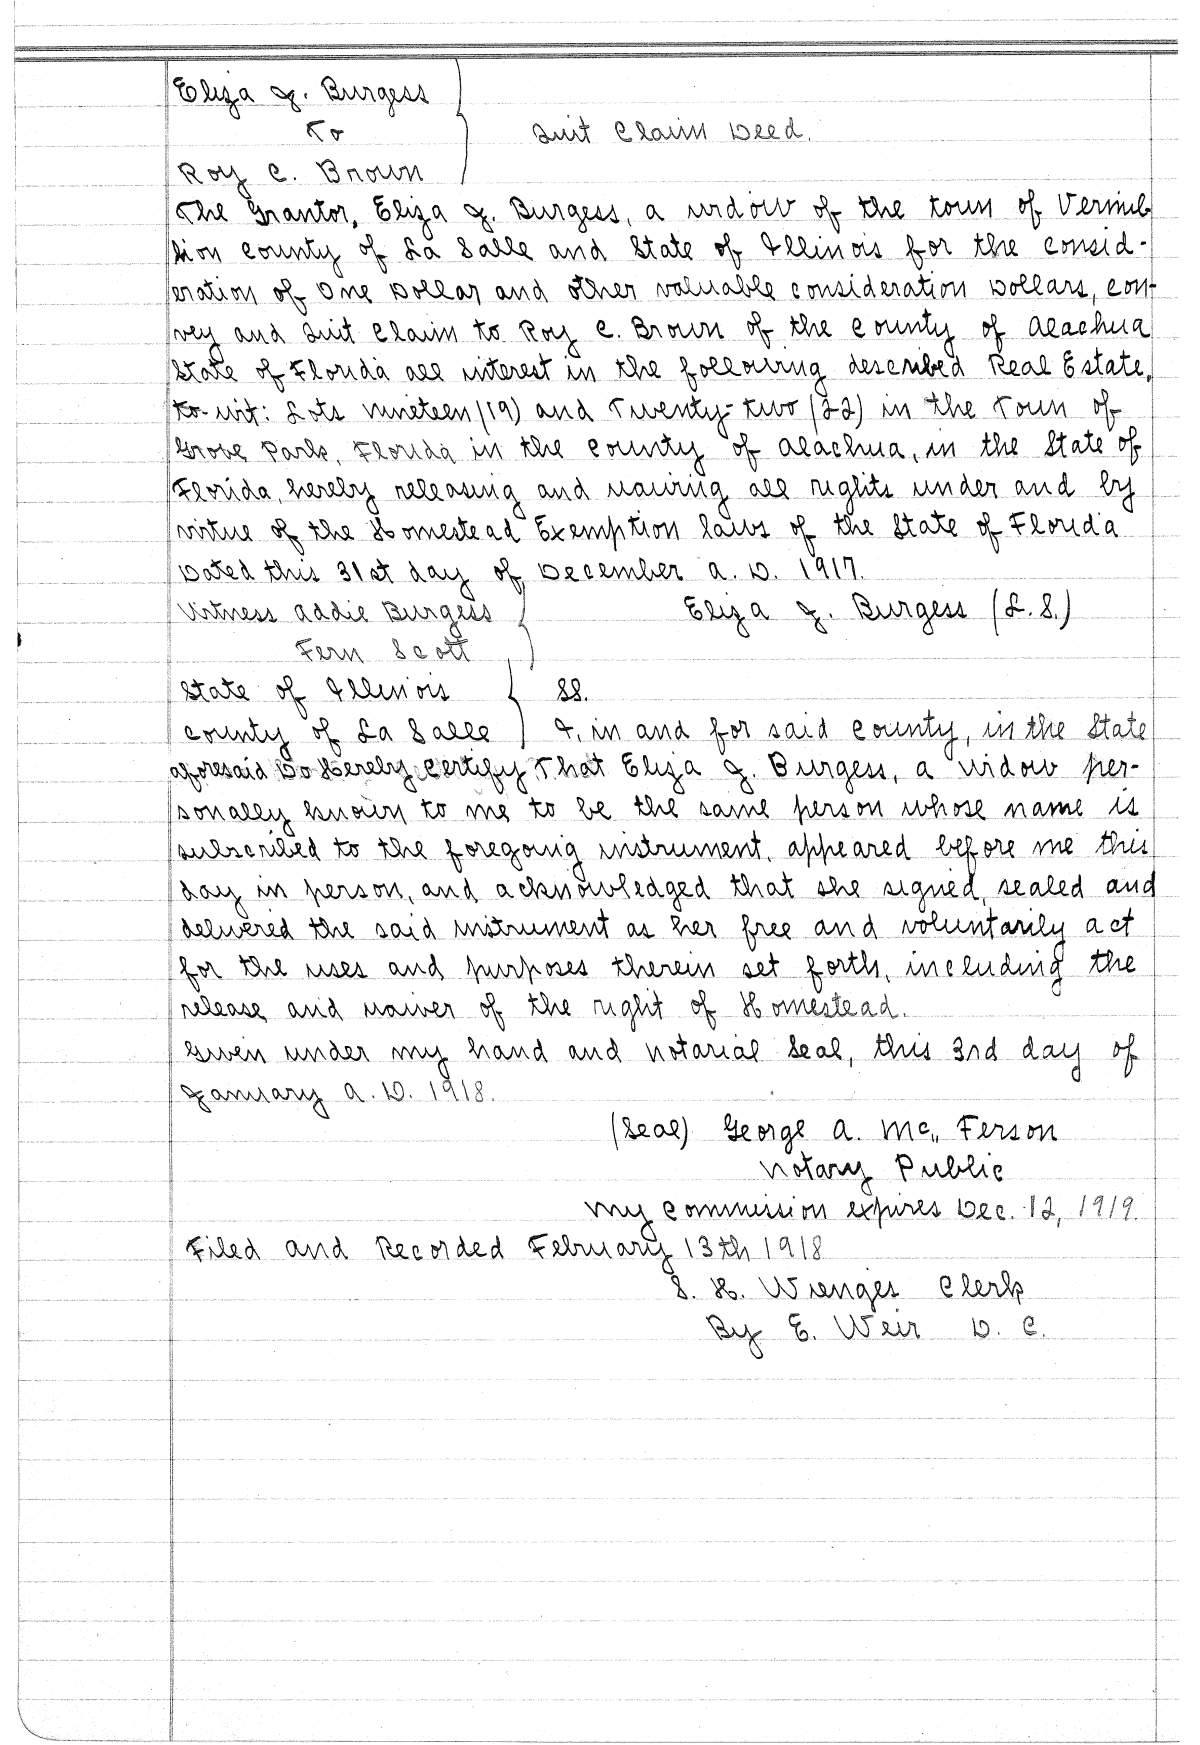 Eliza J. Burgess
To
Quit Claim Deed.
Roy C. Brown
The Grantor, Eliza J. Burgess, a widow of the town of Vermil-
lion County of La Salle and State of Illinois for the consid-
eration of One Dollar and other valuable consideration Dollars, con-
vey and Quit Claim to Roy C. Brown of the County of Alachua
State of Florida all interest in the following described Real Estate,
to-wit: Lots nineteen (19) and Twenty-two (22) in the Town of
Grove Park, Florida in the County of Alachua, in the State of
Florida, hereby releasing and waiving all rights under and by
virtue of the Homestead Exemption laws of the State of Florida
Dated this 31st day of December A.D. 1917.
Witness Addie Burgess Eliza J. Burgess (L.S.)
Fern Scott
State of Illinois SS.
County of La Salle I, in and for said County, in the State
aforesaid Do Hereby Certify That Eliza J. Burgess, a widow per-
sonally known to me to be the same person whose name is
subscribed to the foregoing instrument, appeared before me this
day in person, and acknowledged that she signed, sealed and
delivered the said instrument as her free and voluntarily act
for the uses and purposes therein set forth, including the
release and waiver of the right of Homestead.
Given under my hand and notarial Seal, this 3rd day of
January A.D. 1918.
(Seal) George A. Mc,, Ferson
Notary Public
My Commission expires Dec. 12, 1919.
Filed and Recorded February 13th 1918
S. H. Wienges Clerk
By E. Weir D. C.